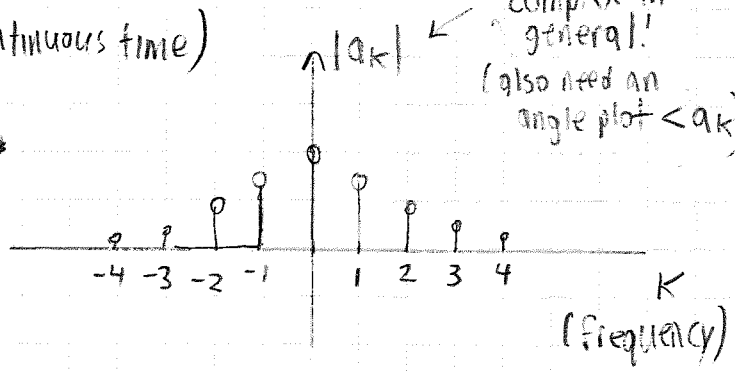 tinuous time)
|a_k|
general!
(also need an
angle plot < a_k)
-4 -3 -2 -1 1 2 3 4 K
(frequency)